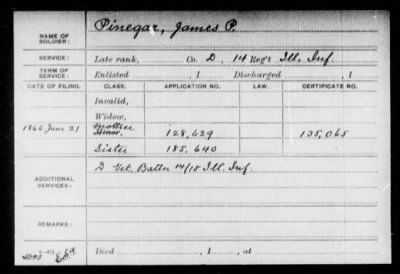 NAME OF SOLDIER: Pinegar, James P.
SERVICE: Late rank, Co. D, 14 Reg't Ill. Inf.
TERM OF SERVICE: Enlisted , 1 Discharged , 1
DATE OF FILING. CLASS. APPLICATION NO. LAW. CERTIFICATE NO.
Invalid,
Widow,
Mother
1866 June 21 Minor, 128,629 135,065
Sister 185,640
ADDITIONAL SERVICES: D Vet. Battn 14/15 Ill. Inf.
REMARKS:
Died , 1 , at